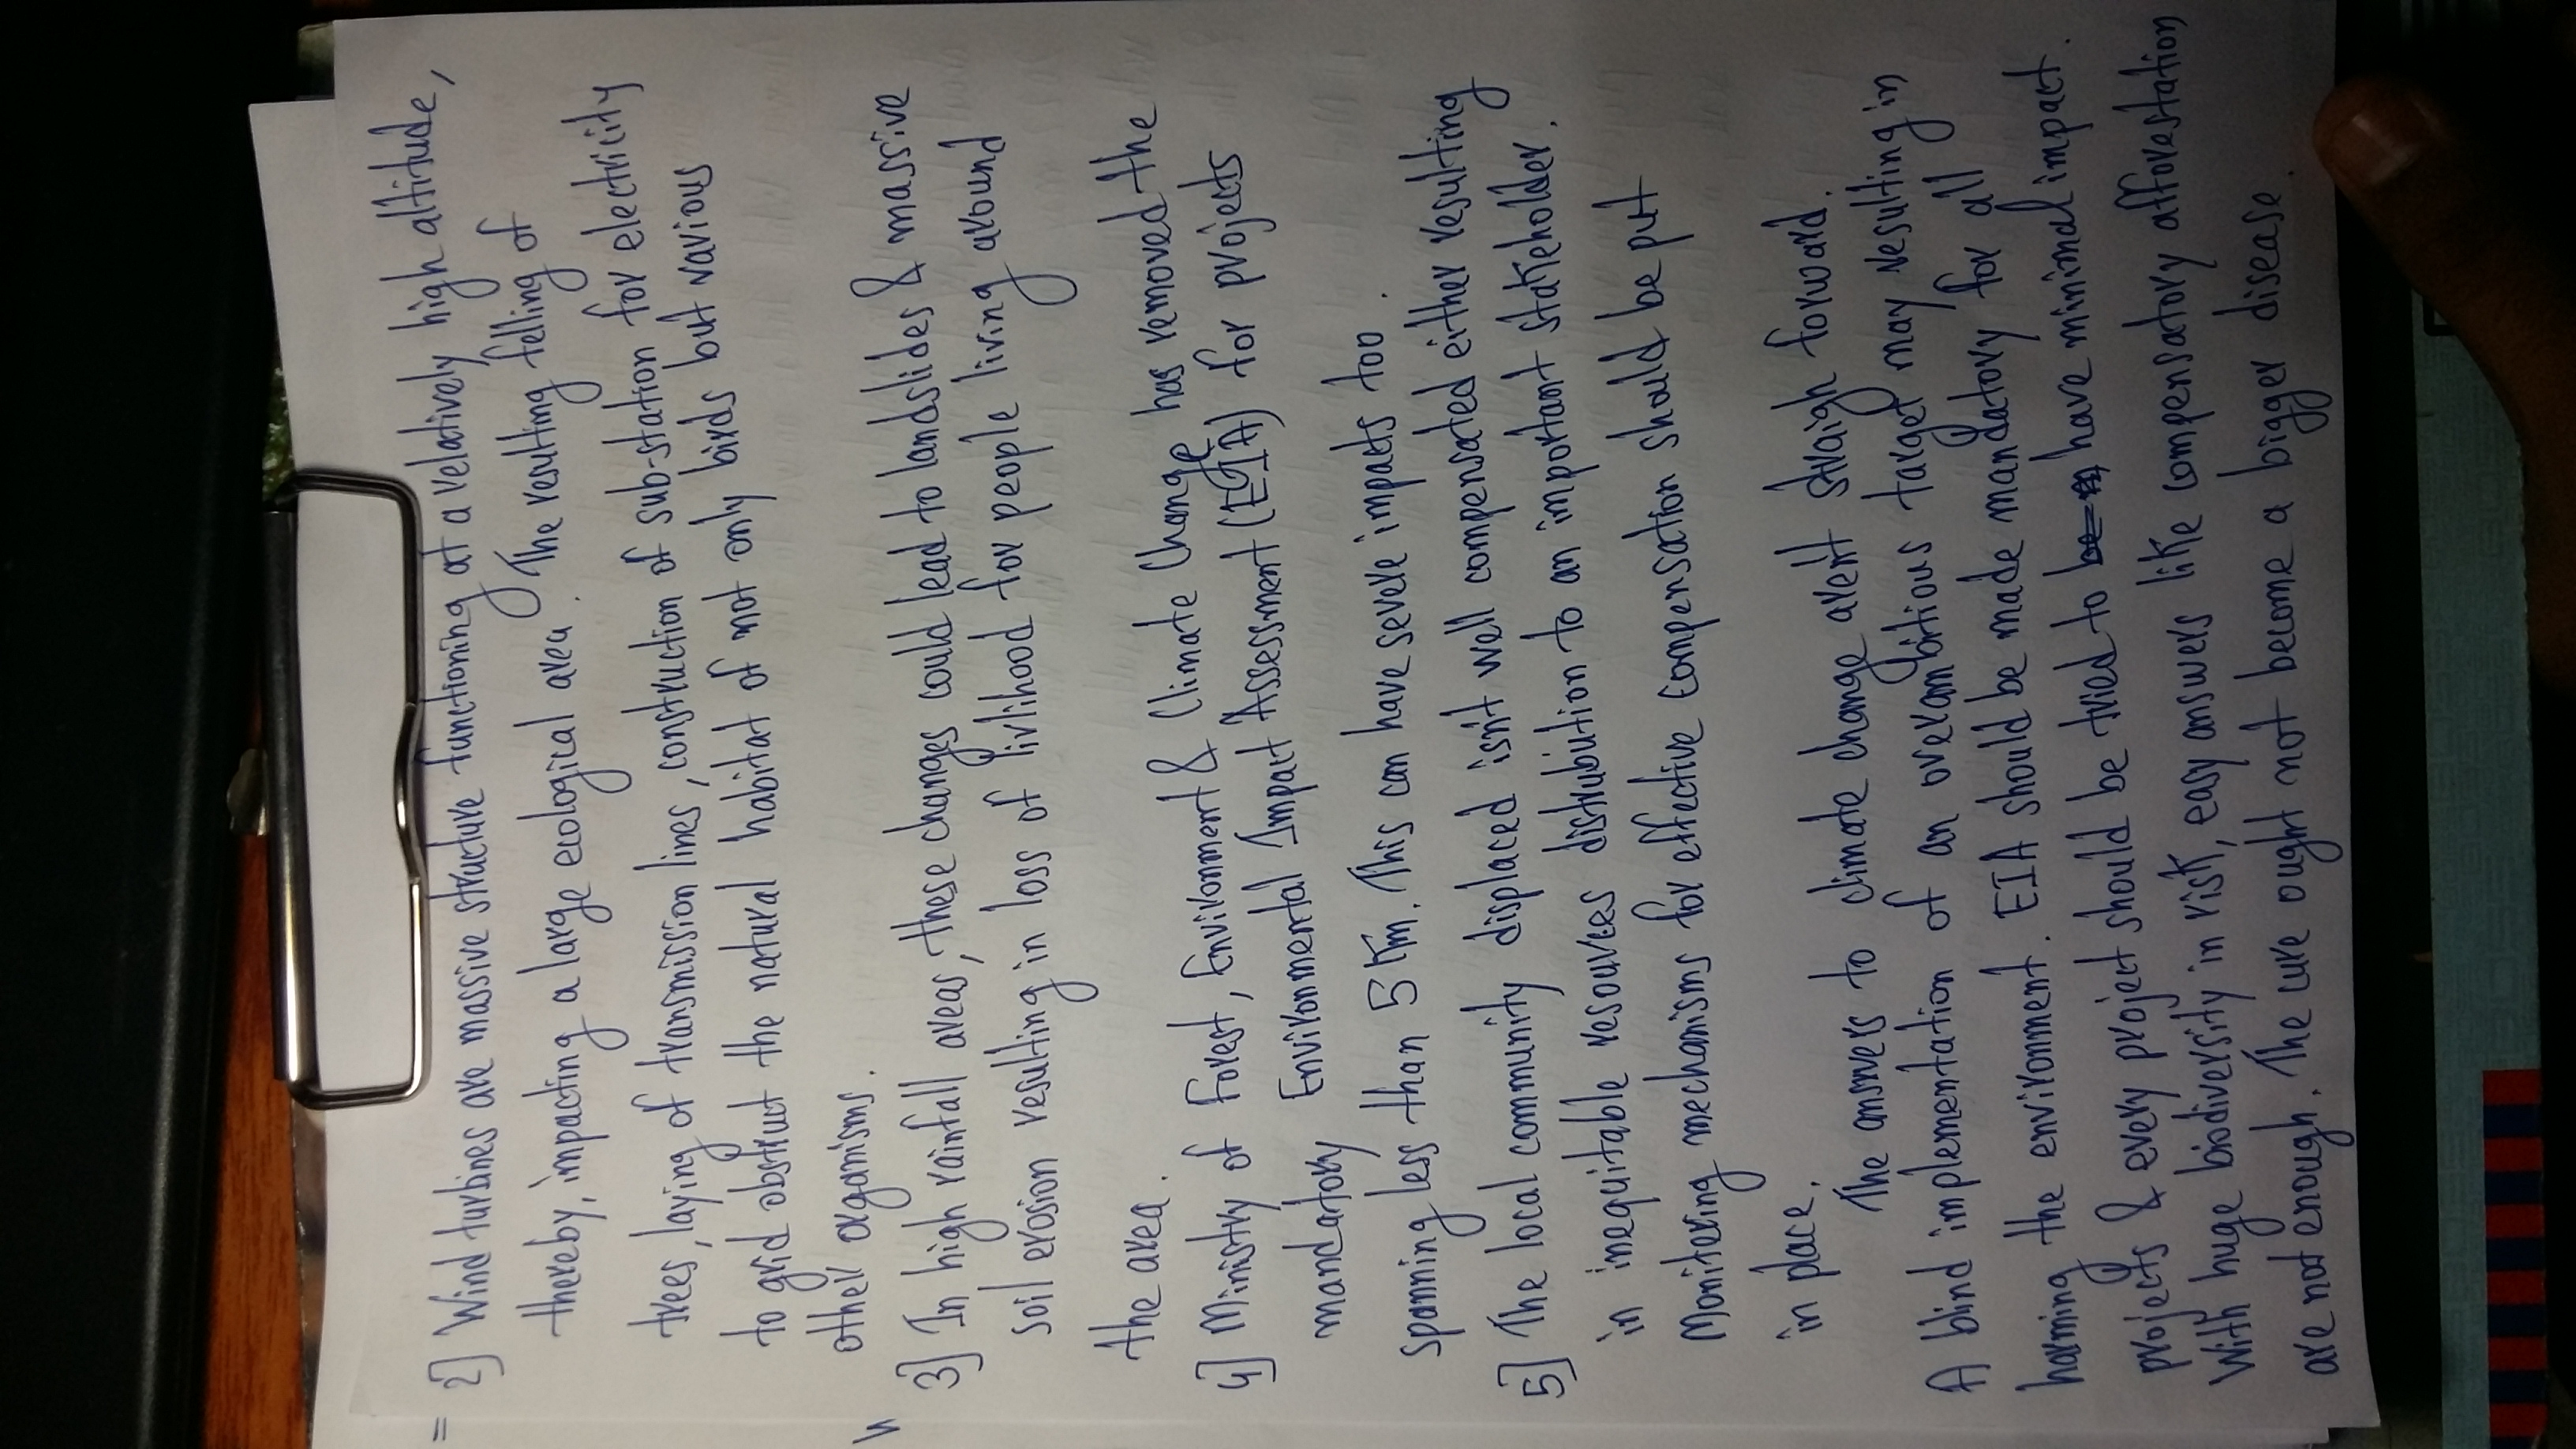 2] Wind turbines are massive structure functioning at a relatively high altitude,
thereby, impacting a large ecological area. The resulting felling of
trees, laying of transmission lines, construction of sub-station for electricity
to grid obstruct the natural habitat of not only birds but various
other organisms.
3] In high rainfall areas, these changes could lead to landslides & massive
soil erosion resulting in loss of livlihood for people living around
the area.
4] Ministry of Forest, Environment & Climate Change has removed the
mandatory Environmental Impact Assessment (EIA) for projects
spanning less than 5 Km. This can have severe impacts too.
5] The local community displaced isn't well compensated either resulting
in inequitable resources distribution to an important stakeholder.
Monitering mechanisms for effective compensation should be put
in place.
The answers to climate change arent straigh forward.
A blind implementation of an overambitious target may resulting in
harming the environment. EIA should be made mandatory for all
projects & every project should be tried to have minimal impact.
With huge biodiversity in risk, easy answers like compensatory afforestation
are not enough. The cure ought not become a bigger disease.